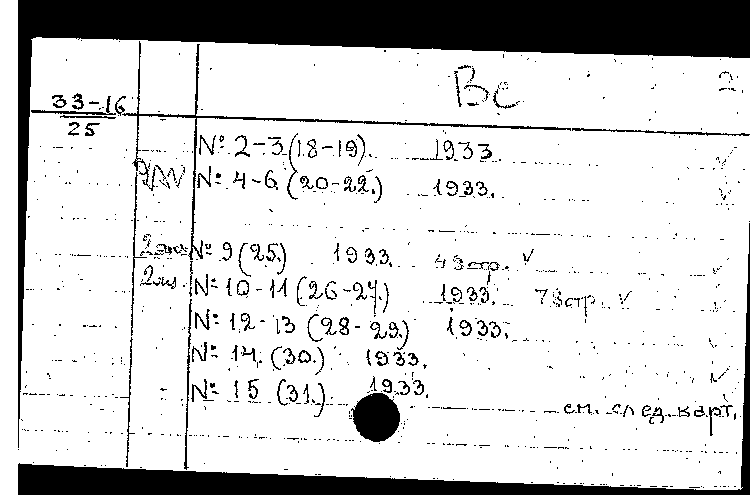 Вс 2
33-16
25
№ 2-3 (18-19). 1933
№ 4-6 (20-22.) 1933.
2 экз № 9 (25.) 1933. 48 стр. ✓
2 экз. № 10-11 (26-27.) 1933. 78 стр. ✓
№ 12-13 (28-29.) 1933.
№ 14. (30.) 1933.
№ 15 (31.) 1933.
см. след. карт.